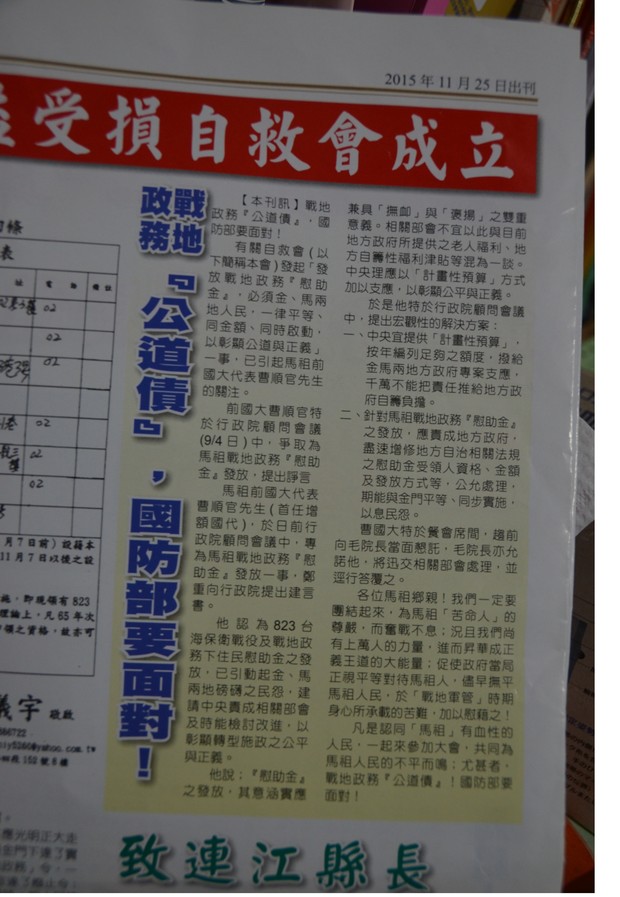 2015年11月25日出刊
受損自救會成立
戰地政務
『公道債』，國防部要面對！
【本刊訊】戰地
政務『公道債』，國
防部要面對！
有關自救會（以
下簡稱本會）發起「發
放戰地政務『慰助
金』，必須金、馬兩
地人民，一律平等、
同金額、同時啟動，
以彰顯公道與正義」
一事，已引起馬祖前
國大代表曹順官先生
的關注。
前國大曹順官特
於行政院顧問會議
(9/4日)中，爭取為
馬祖戰地政務『慰助
金』發放，提出諍言
馬祖前國大代表
曹順官先生(首任增
額國代)，於日前行政
院顧問會議中，專
為馬祖戰地政務『慰
助金』發放一事，鄭
重向行政院提出建言
書。
他認為823台
海保衛戰役及戰地政
務下住民慰助金之發
放，已引動起金、馬
兩地磅礡之民怨，建
請中央責成相關部會
及時能檢討改進，以
彰顯轉型施政之公平
與正義。
他說：『慰助金』
之發放，其意涵實應
兼具「撫卹」與「褒揚」之雙重
意義。相關部會不宜以此與目前
地方政府所提供之老人福利、地
方自籌性福利津貼等混為一談。
中央理應以「計畫性預算」方式
加以支應，以彰顯公平與正義。
於是他特於行政院顧問會議
中，提出宏觀性的解決方案：
一、中央宜提供「計畫性預算」，
按年編列足夠之額度，撥給
金馬兩地方政府專案支應，
千萬不能把責任推給地方政
府自籌負擔。
二、針對馬祖戰地政務『慰助金』
之發放，應責成地方政府，
盡速增修地方自治相關法規
之慰助金受領人資格、金額
及發放方式等，公允處理，
期能與金門平等、同步實施，
以息民怨。
曹國大特於餐會席間，趨前
向毛院長當面懇託，毛院長亦允
諾他，將迅交相關部會處理，並
逕行答覆之。
各位馬祖鄉親！我們一定要
團結起來，為馬祖「苦命人」的
尊嚴，而奮戰不息；況且我們尚
有上萬人的力量，進而昇華成正
義王道的大能量；促使政府當局
正視平等對待馬祖人，儘早撫平
馬祖人民，於「戰地軍管」時期
身心所承載的苦難，加以慰藉之！
凡是認同「馬祖」有血性的
人民，一起來參加大會，共同為
馬祖人民的不平而鳴；尤甚者，
戰地政務『公道債』！國防部要
面對！
致連江縣長
表
02
02
02
02
02
月7日前）設籍本
11月7日以後之設
施，即現領有823
理論上，凡65年次
申領之資格，故亦可
義宇 敬啟
152號8樓
應光明正大走